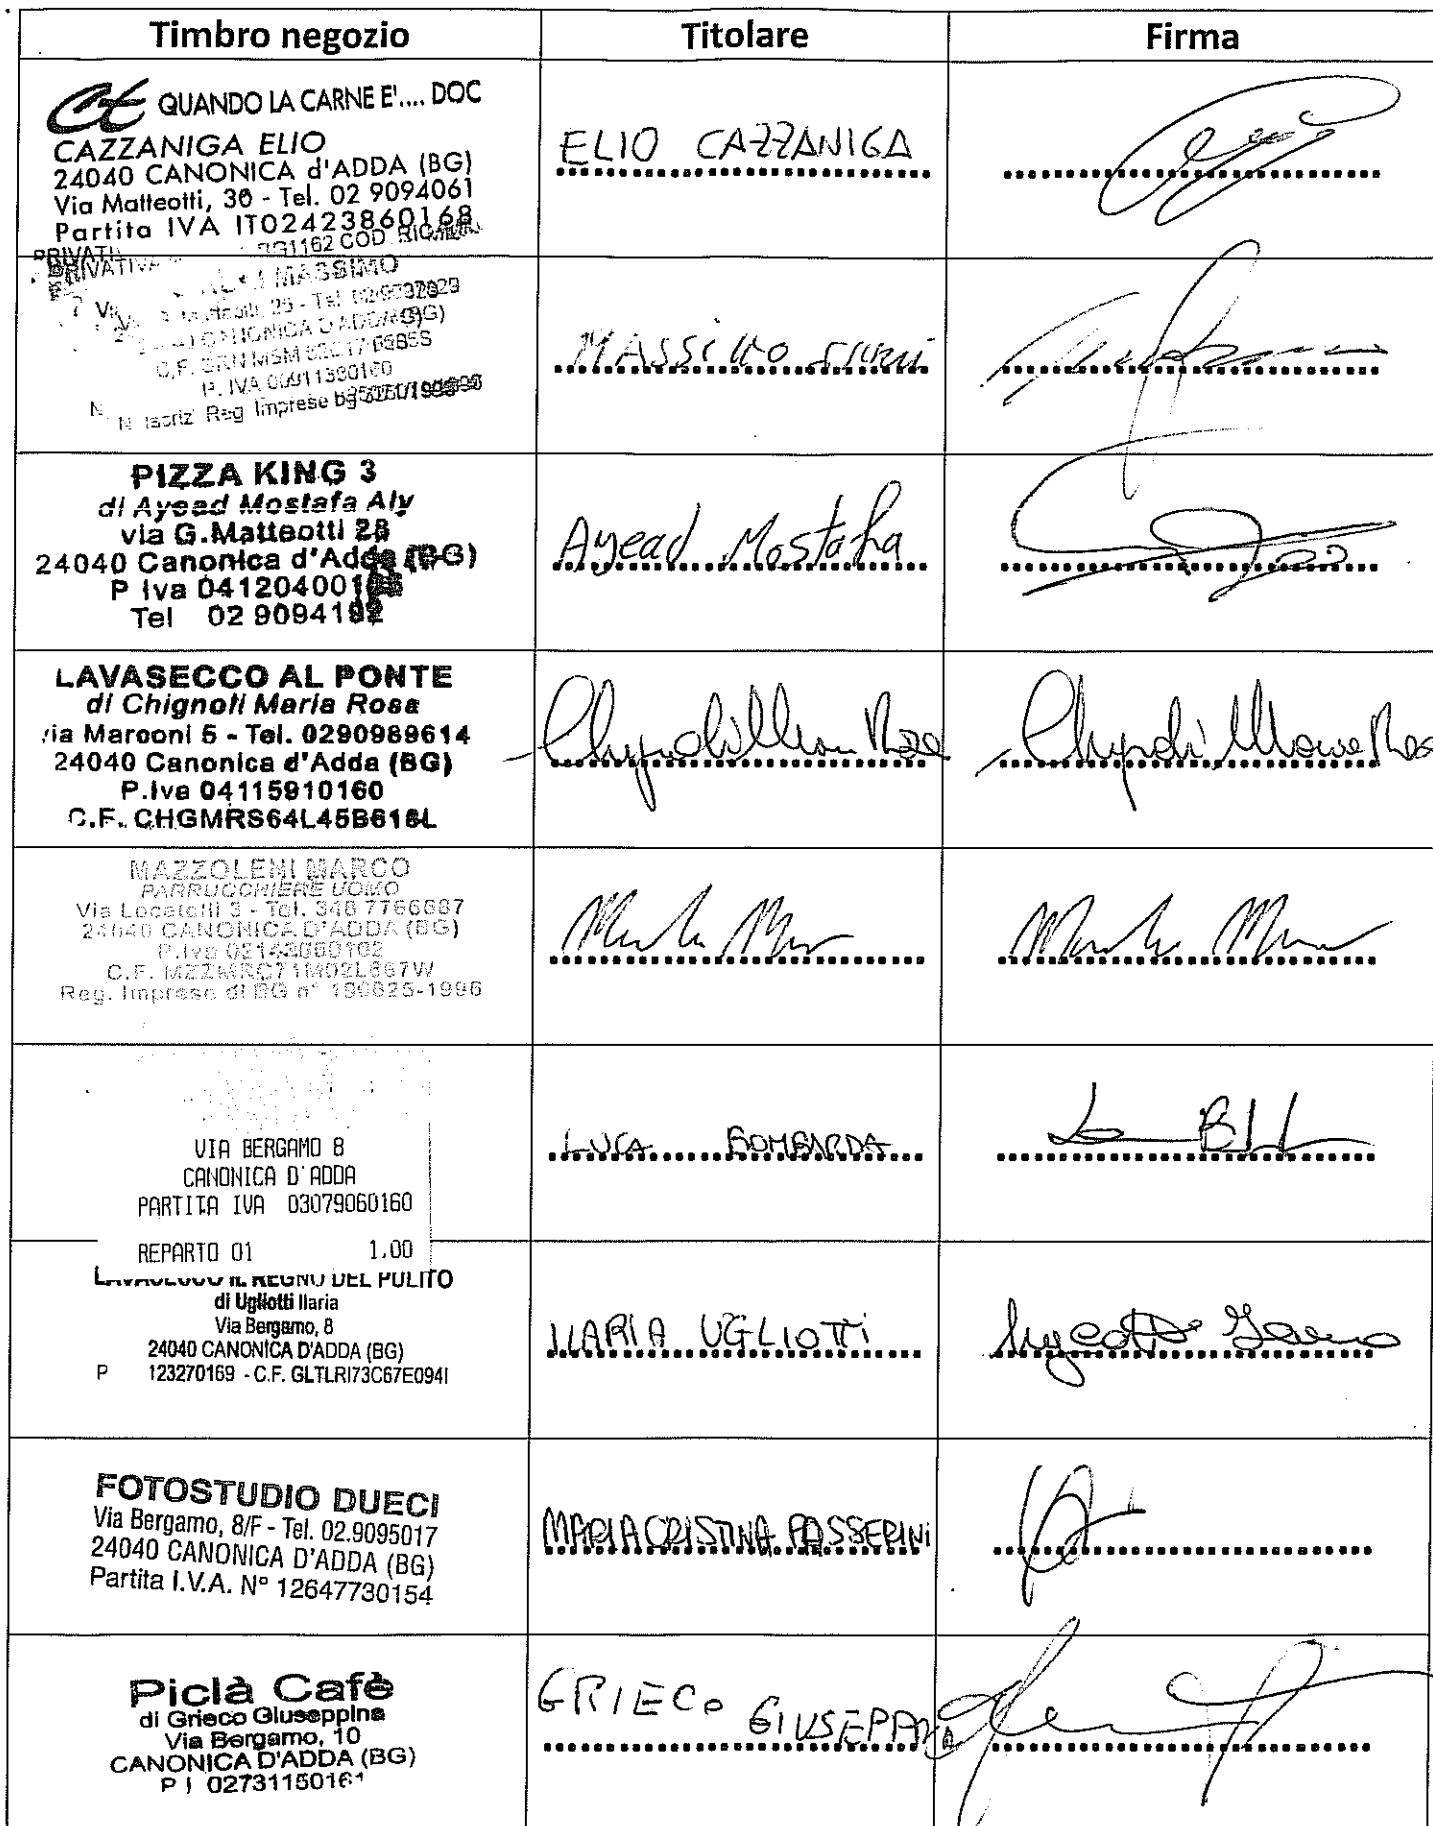 Timbro negozio Titolare Firma
QUANDO LA CARNE E'.... DOC
CAZZANIGA ELIO
24040 CANONICA d'ADDA (BG)
Via Matteotti, 36 - Tel. 02 9094061
Partita IVA IT02423860168
ELIO CAZZANIGA
BG1162 COD
MASSIMO
CANONICA D'ADDA (BG)
C.F.
P. IVA
N. Iscriz. Reg. Imprese bg
MASSIMO
PIZZA KING 3
di Ayead Mostafa Aly
via G.Matteotti 28
24040 Canonica d'Adda (BG)
P Iva 04120400
Tel 02 9094192
Ayead Mostafa
LAVASECCO AL PONTE
di Chignoli Maria Rosa
via Marconi 5 - Tel. 0290989614
24040 Canonica d'Adda (BG)
P.Iva 04115910160
C.F. CHGMRS64L45B618L
Chignoli Maria Rosa Chignoli Maria Rosa
MAZZOLENI MARCO
PARRUCCHIERE UOMO
Via Locatelli 3 - Tel. 348 7766887
24040 CANONICA D'ADDA (BG)
P.Iva 02143060162
C.F. MZZMRC71M02L667W
Reg. Imprese di BG n° 190825-1996
VIA BERGAMO 8
CANONICA D'ADDA
PARTITA IVA 03079060160
REPARTO 01 1.00
LUCA BOMBARDA
LAVASECCO IL REGNO DEL PULITO
di Ugliotti Ilaria
Via Bergamo, 8
24040 CANONICA D'ADDA (BG)
P 123270169 - C.F. GLTLRI73C67E094I
ILARIA UGLIOTTI
FOTOSTUDIO DUECI
Via Bergamo, 8/F - Tel. 02.9095017
24040 CANONICA D'ADDA (BG)
Partita I.V.A. N° 12647730154
MARIA CRISTINA PASSERINI
Piclà Cafè
di Grieco Giuseppina
Via Bergamo, 10
CANONICA D'ADDA (BG)
P I 02731150161
GRIECO GIUSEPPINA